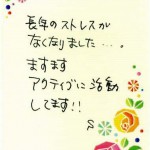 長年のストレスが
なくなりました…。
ますます
アクティブに活動
してます!!
S